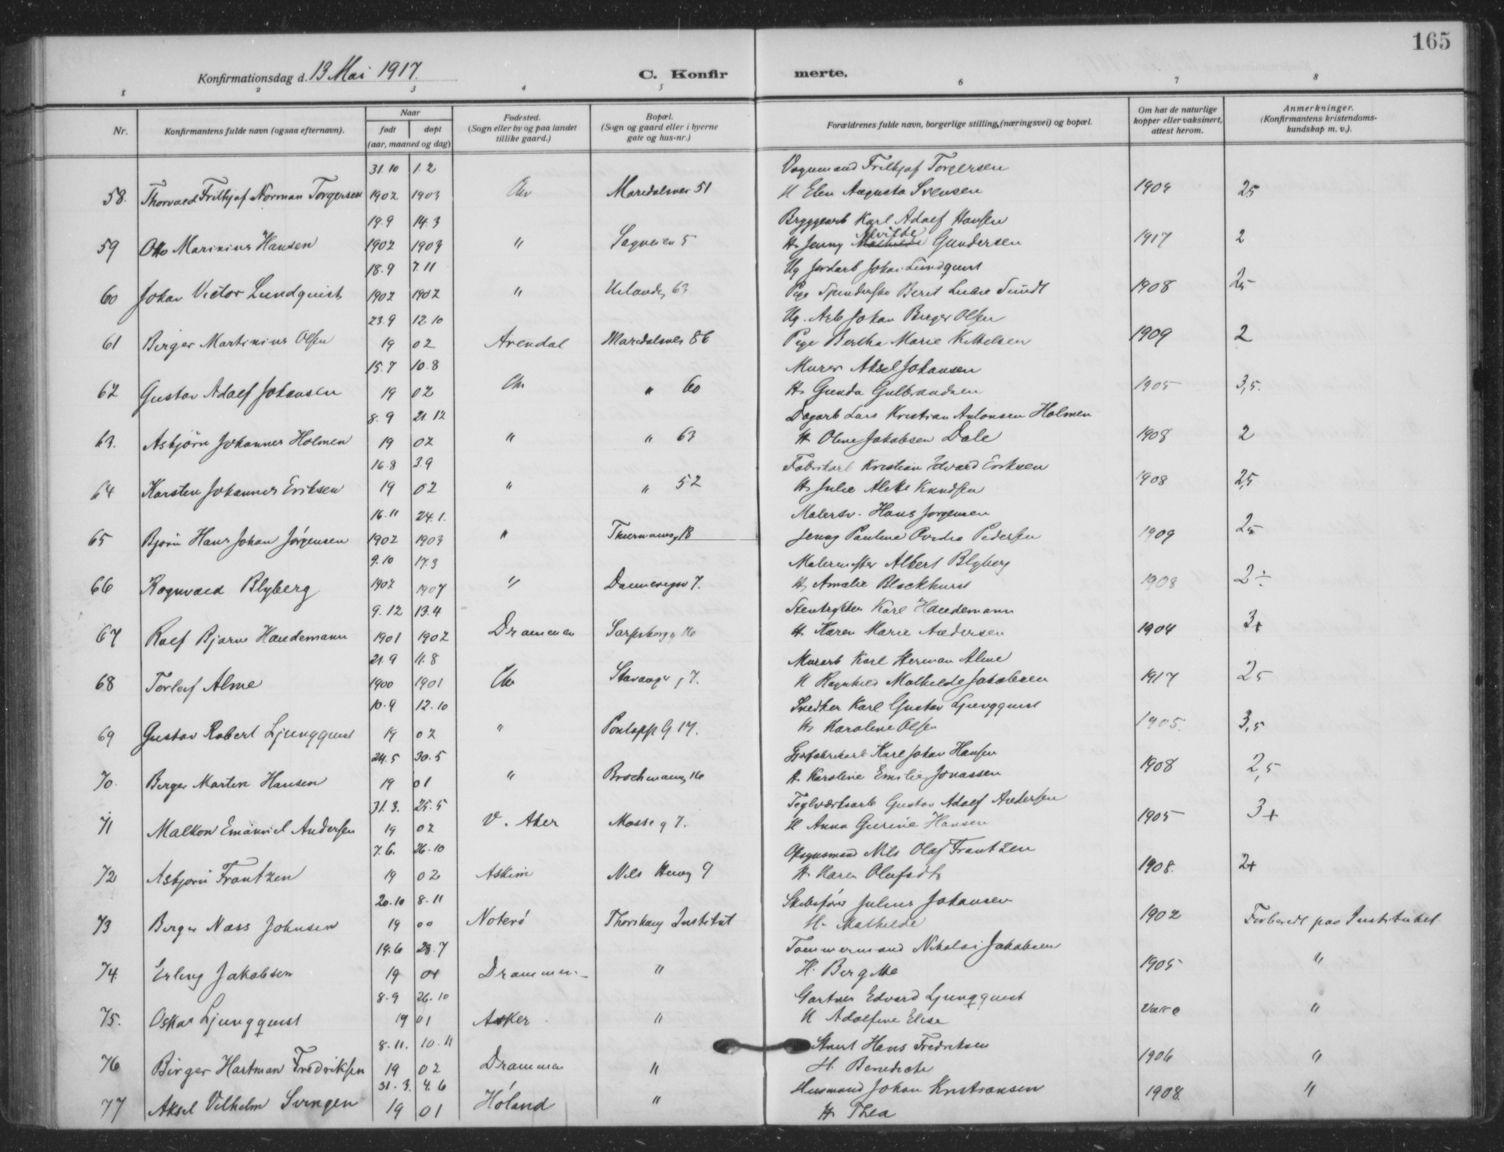 165
Konfirmationsdag d. 13 Mai 1917
C. Konfirmerte.
1 2 3 4 5 6 7 8
Nr. Konfirmantens fulde navn (ogsaa efternavn). Naar født døpt (aar, maaned og dag) Fødested. (Sogn eller by og paa landet tillike gaard.) Bopæl. (Sogn og gaard eller i byerne gate og hus-nr.) Forældrenes fulde navn, borgerlige stilling, (næringsvei) og bopæl. Om hat de naturlige kopper eller vaksinert, attest herom. Anmerkninger. (Konfirmantens kristendomskundskap m. v.).
31.10 1.2 Torgersen
58. Frithjof Norman Torgersen 1902 1903 Chr Maridalsvei 51 H Elen Augusta Svensen 1904 2,5
19.9 14.3 Karl Adolf Hansen
59 Otto Marinius Hansen 1902 1903 " Sagveien 5 H. Jenny Gundersen 1917 2
18.9 7.11 Ug Johan Lundquist
60 Johan Victor Lundquist 1902 1902 " 63 Pige Berit Sundt 1908 2,5
23.9 12.10 Ug. Arb Johan Birger Olsen
61 Birger Martinius Olsen 19 02 Arendal Maridalsvei 86 Pige Bertha Marie Kittelsen 1909 2
15.7 10.8 Murer Aksel Johansen
62 Gustav Adolf Johansen 19 02 Chr " 60 H. Gunda Gulbrandsen 1905 3,5.
8.9 21.12 Dagarb Lars Kristian Antonsen Holmen
63. Asbjørn Johannes Holmen 19 02 " " 63 H. Oline Jakobsen Dale 1908 2
16.8 3.9 Kristian Edvard Eriksen
64 Karsten Johannes Eriksen 19 02 " " 52 H. Julie Knudsen 1908 2,5
16.11 24.1. Malersv. Hans Jørgensen
65 Bjørn Hans Johan Jørgensen 1902 1903 " 18 Jenny Pauline Pedersen 1909 2,5
9.10 17.3 Malermester Albert Blyberg
66 Rognvald Blyberg 1902 1907 " Dannevigsv 7. H. Amalie Blockhuus 1908 2÷
9.12 13.4 Karl Handemann
67 Rolf Bjarne Handemann 1901 1902 Drammen Sarpsborgg 16 H. Karen Marie Andersen 1904 3+
21.9 11.8 Murarb Karl Herman Alme
68 Torleif Alme 1900 1901 Chr Stavangerg 7. H Ragnhild Mathilde Jakobsen 1917 2,5
10.9 12.10 Snedker Karl Gustav Ljungquist
69 Gustav Robert Ljungquist 19 02 " Pontoppi g 17. H. Karoline Olsen 1905. 3,5
24.5 30.5 Karl Johan Hansen
70. Birger Martin Hansen 19 01 " Brochmannsg 16 H. Karoline Emilie Jonassen 1908 2,5
31.3. 25.5 Teglverksarb Gustav Adolf Andersen
71 Malkon Emanuel Andersen 19 02 V. Aker Mosseg 7. H Anna Gurine Hansen 1905 3+
7.6. 26.10 Nils Olaf Frantzen
72 Asbjørn Frantzen 19 02 Askim 9 H. Karen 1908. 2+
20.10 8.11 Skibsfører Julius Johansen
73 Birger Næss Johnsen 19 00 Noterø Thorshaug Institut H. Mathilde 1902 Forberedt paa Institutet
19.6 28.7 Tømmermand Nikolai Jakobsen
74 Erling Jakobsen 19 01 Drammen " H. Birgitte 1905 "
8.9 26.10 Gartner Edvard Ljungquist
75. Oskar Ljungquist 19 01 Asker " H Adolfine Elise "
8.11. 10.11 Hans Fredriksen
76 Birger Hartman Fredriksen 19 02 Drammen " H. Benedicte 1906 "
31.3. 4.6 Husmand Johan Kristiansen
77 Aksel Vilhelm Svingen 19 01 Høland " H. Thea 1908 "